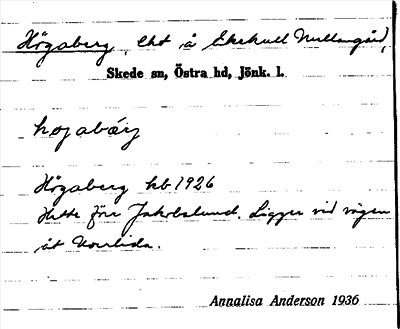 Högaberg, lht å Ekekull Mellangård,
Skede sn, Östra hd, Jönk. l.
högabärg
Högaberg kb 1926
Hette förr Jakobslund. Ligger vid vägen
åt Norrlida.
Annalisa Anderson 1936